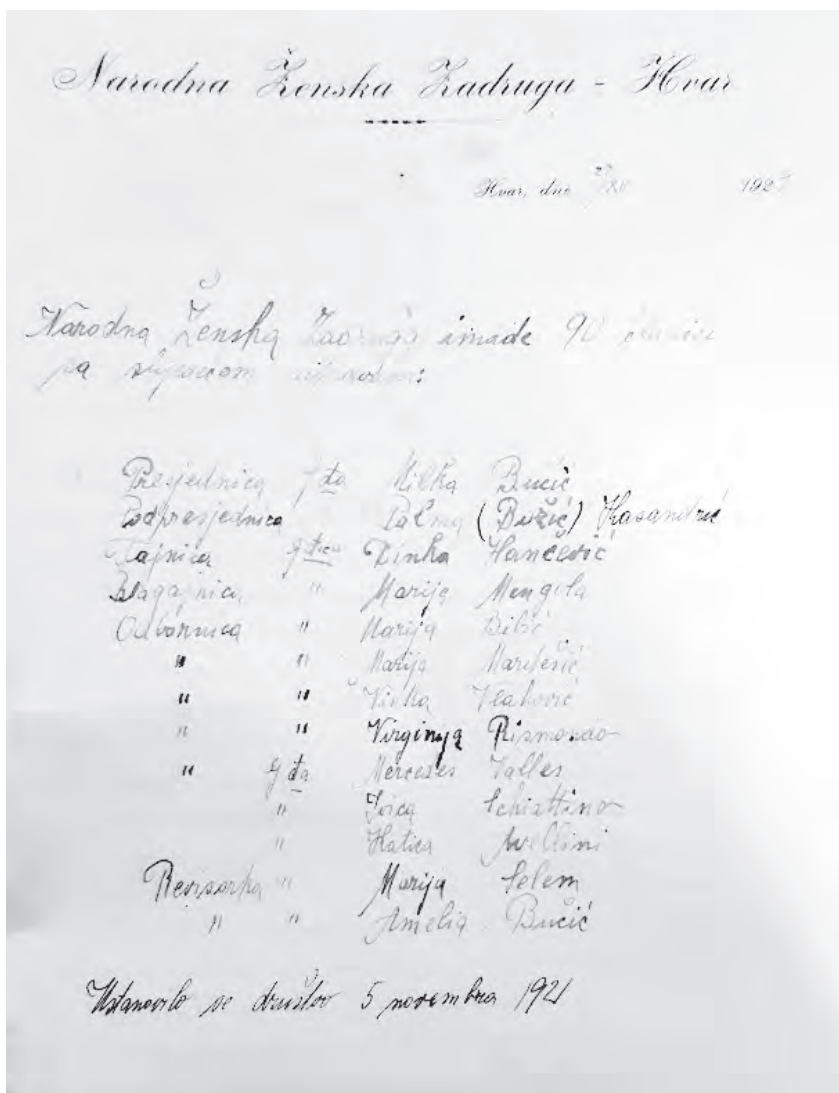 Narodna Ženska Zadruga - Hvar
Hvar, dne 192
Narodna Ženska Zadruga imade 90 članica
sa slijedećom upravom:
Presjednica gđa Milka Bučić
Podpresjednica Palma (Božić) Kasandrić
Tajnica gđica Dinka Hančević
Blagajnica " Marija Mengola
Odbornica " Marija Bibić
" " Marija
" " Vinka Vlahović
" " Virginija Rismondo
" gđa Mercedes Valles
" Joica Schiattino
" Katica Avellini
Revisorka " Marija Selem
" " Amelia Bučić
Ustanovilo se društvo 5 novembra 1921